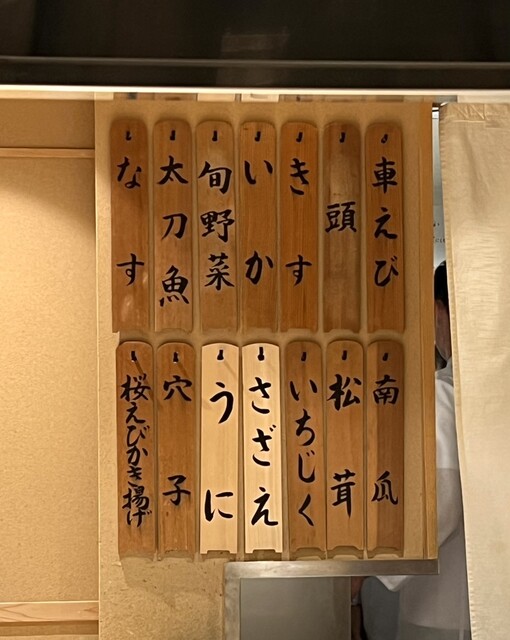 車えび
頭
きす
いか
旬野菜
太刀魚
なす
南瓜
松茸
いちじく
さざえ
うに
穴子
桜えびかき揚げ